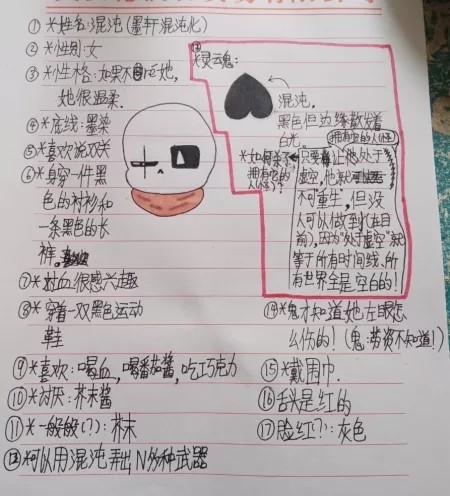 ①*姓名:混沌(墨轩混沌化)
②*性别:女
③*性格:如果不
她,
她很温柔.
④*底线:墨染
⑤*喜欢说双关
⑥*身穿一件黑
色的衬衫和
一条黑色的长
裤。
⑦*对血很感兴趣
⑧*穿着一双黑色运动
鞋
⑨*喜欢:喝血,喝番茄酱,吃巧克力
⑩*讨厌:芥末酱
⑪*一般般(?):芥末
⑬*可以用混沌弄出N多种武器
*灵魂:
混沌.
黑色但边缘散发着
白光.
拥有它的人(怪)
*如何杀了
拥有它的
人(怪)?
只要让他处于
虚空,他就
不可重生,但没
人可以做到(在目
前),因为“处于虚空”就
等于所有时间线、所
有世界全是空白的!
⑭*鬼才知道她左眼怎
么伤的!(鬼:劳资不知道!)
⑮*戴围巾.
⑯舌头是红的
⑰脸红(?):灰色